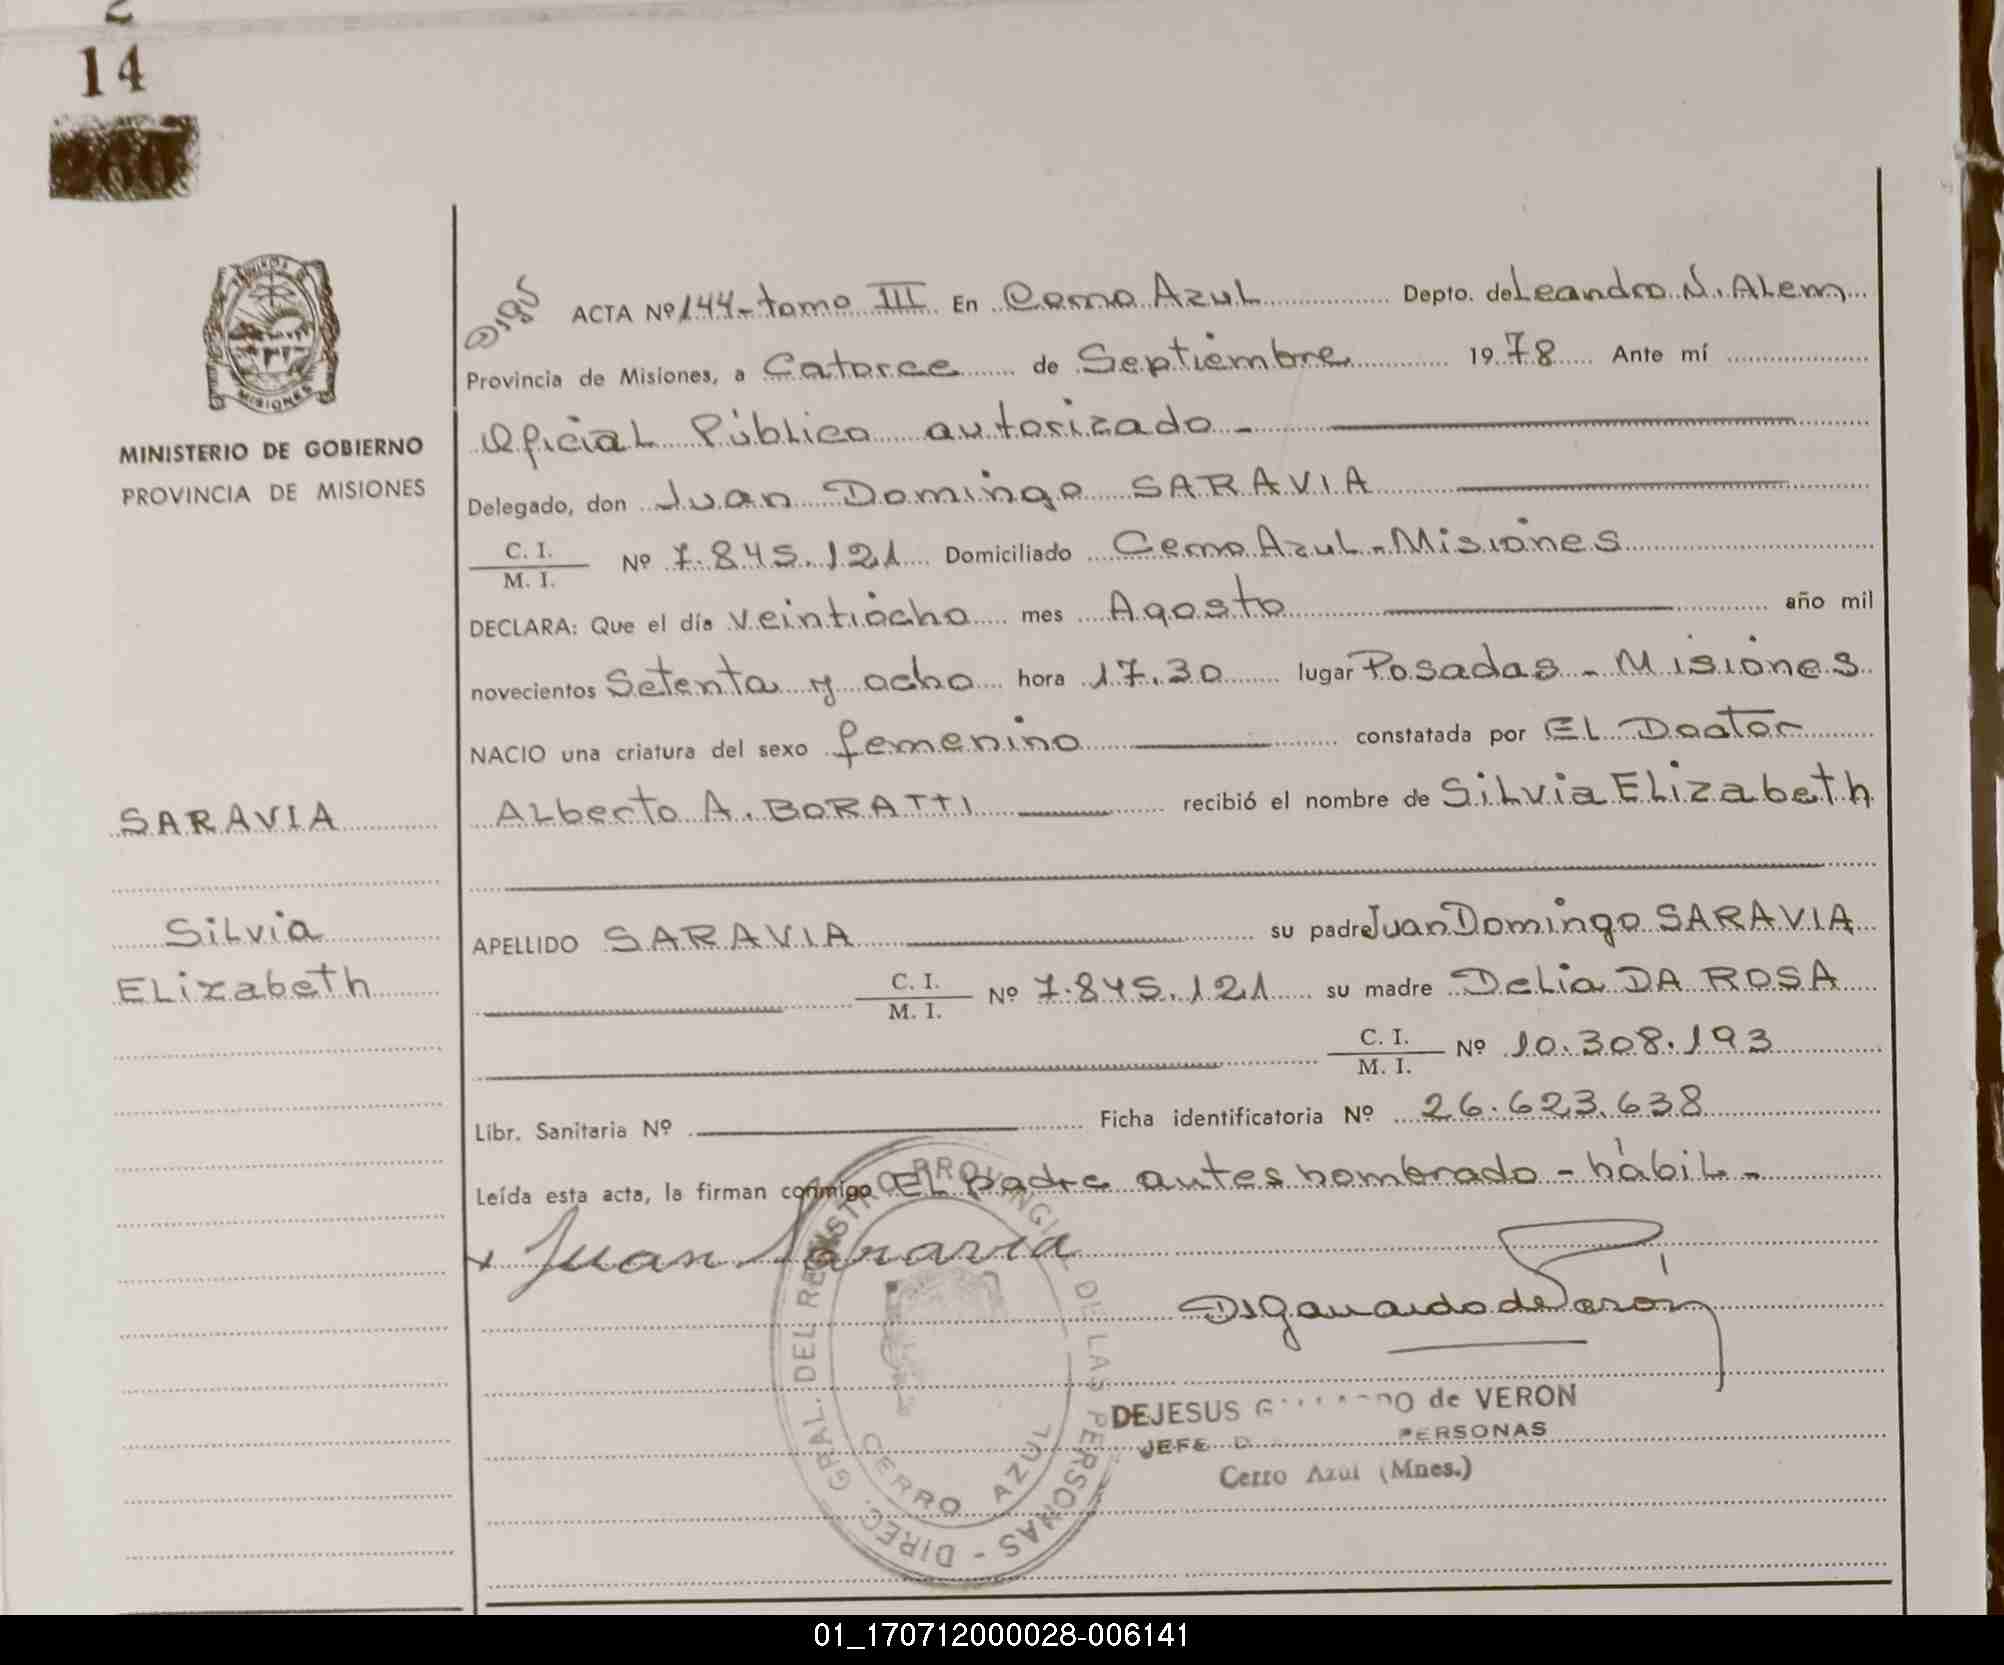 14
MISIONES
MINISTERIO DE GOBIERNO
PROVINCIA DE MISIONES
SARAVIA
Silvia
Elizabeth
ACTA Nº 144 - tomo III En Cerro Azul Depto. de Leandro N. Alem
Provincia de Misiones, a Catorce de Septiembre 19 78 Ante mí
Oficial Público autorizado -
Delegado, don Juan Domingo SARAVIA
C. I.
M. I. Nº 7.845.121 Domiciliado Cerro Azul - Misiones
DECLARA: Que el día veintiocho mes Agosto año mil
novecientos Setenta y ocho hora 17.30 lugar Posadas - Misiones
NACIO una criatura del sexo femenino constatada por El Doctor
Alberto A. BORATTI recibió el nombre de Silvia Elizabeth
APELLIDO SARAVIA su padre Juan Domingo SARAVIA
C. I.
M. I. Nº 7.845.121 su madre Delia DA ROSA
C. I.
M. I. Nº 10.308.193
Libr. Sanitaria Nº Ficha identificatoria Nº 26.623.638
Leída esta acta, la firman conmigo El padre antes nombrado - hábil -
Juan Saravia
DIREC. GRAL. DEL REGISTRO PROVINCIAL DE LAS PERSONAS -
CERRO AZUL
DEJESUS de VERON
JEFE PERSONAS
Cerro Azul (Mnes.)
01_170712000028-006141